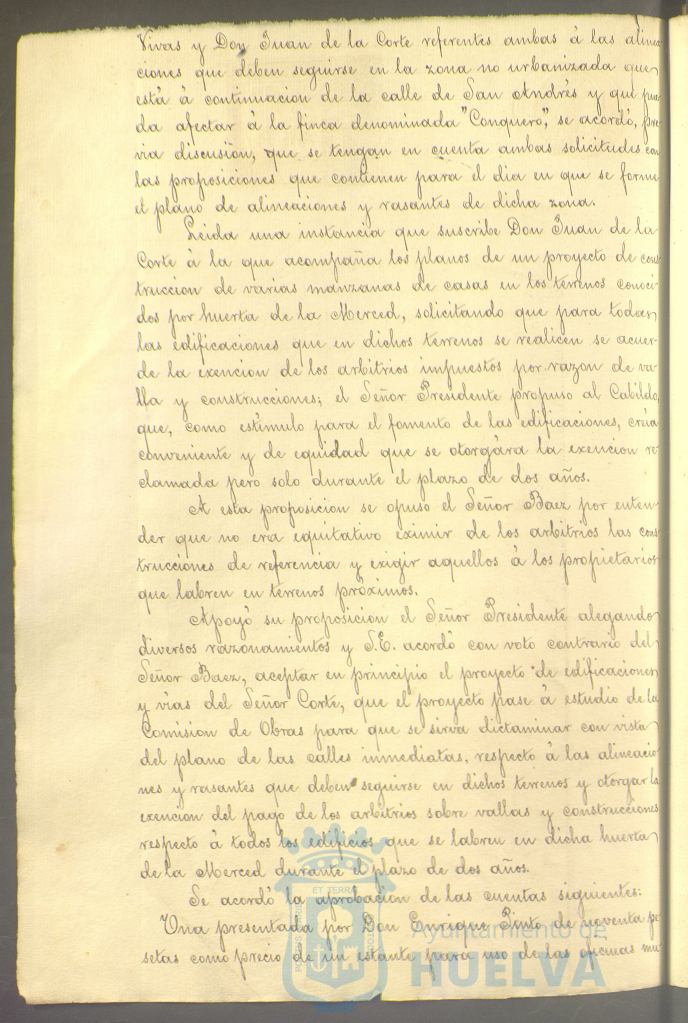 Vivas y Don Juan de la Corte referentes ambas á las alinea
ciones que deben seguirse en la zona no urbanizada que
está á continuacion de la calle de San Andrés y que pue
da afectar á la finca denominada "Conquero", se acordó, pre
via discusión, que se tengan en cuenta ambas solicitudes con
las proposiciones que contienen para el dia en que se forme
el plano de alineaciones y rasantes de dicha zona.
Leida una instancia que suscribe Don Juan de la
Corte á la que acompaña los planos de un proyecto de cons
truccion de varias manzanas de casas en los terrenos conoci
dos por huerta de la Merced, solicitando que para todas
las edificaciones que en dichos terrenos se realicen se acuer-
de la exencion de los arbitrios impuestos por razon de va-
lla y construcciones; el Señor Presidente propuso al Cabildo,
que, como estímulo para el fomento de las edificaciones, creia
conveniente y de equidad que se otorgára la exencion re-
clamada pero solo durante el plazo de dos años.
A esta proposicion se opuso el Señor Baez por enten-
der que no era equitativo eximir de los arbitrios las cons
trucciones de referencia y exigir aquellos á los propietarios
que labren en terrenos próximos.
Apoyó su proposicion el Señor Presidente alegando
diversos razonamientos y S.E. acordó con voto contrario del
Señor Baez, aceptar en principio el proyecto de edificaciones
y vías del Señor Corte, que el proyecto pase á estudio de la
Comision de Obras para que se sirva dictaminar con vista
del plano de las calles inmediatas, respecto á las alineacio
nes y rasantes que deben seguirse en dichos terrenos y otorgar la
exencion del pago de los arbitrios sobre vallas y construcciones
respecto á todos los edificios que se labren en dicha huerta
de la Merced durante el plazo de dos años.
Se acordó la aprobacion de las cuentas siguientes:
Una presentada por Don Enrique Pinto de noventa pe
setas como precio de un estante para uso de las oficinas mu
ET TERRA
Ayuntamiento de
HUELVA